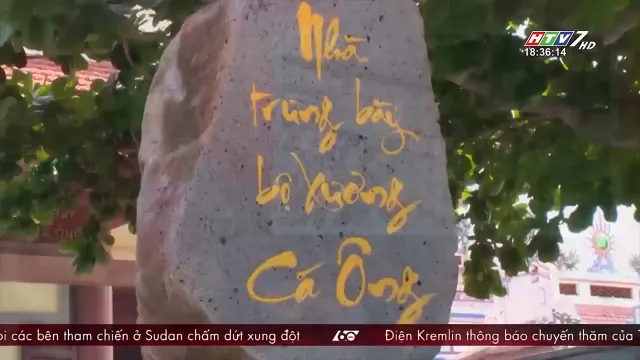 HTV7 HD
18:36:14
Nhà
trưng bày
bộ xương
Cá Ông
ÔNG
ọi các bên tham chiến ở Sudan chấm dứt xung đột
60
Điện Kremlin thông báo chuyến thăm của